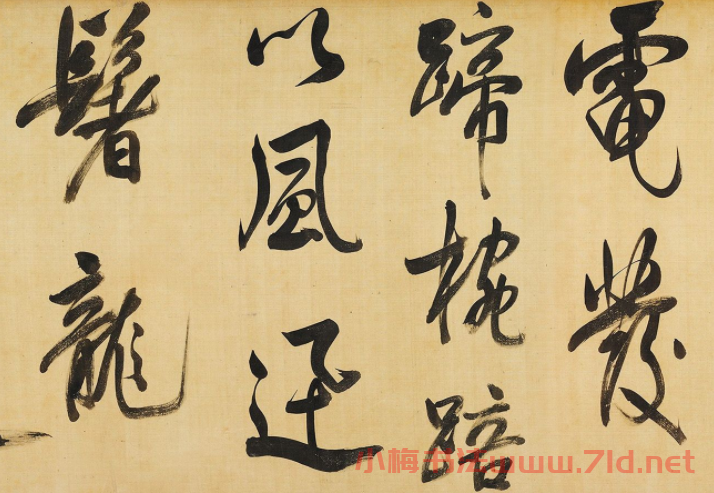 電發
蹄椀踣
以風迅
鬐龍
小梅书法www.7ld.net